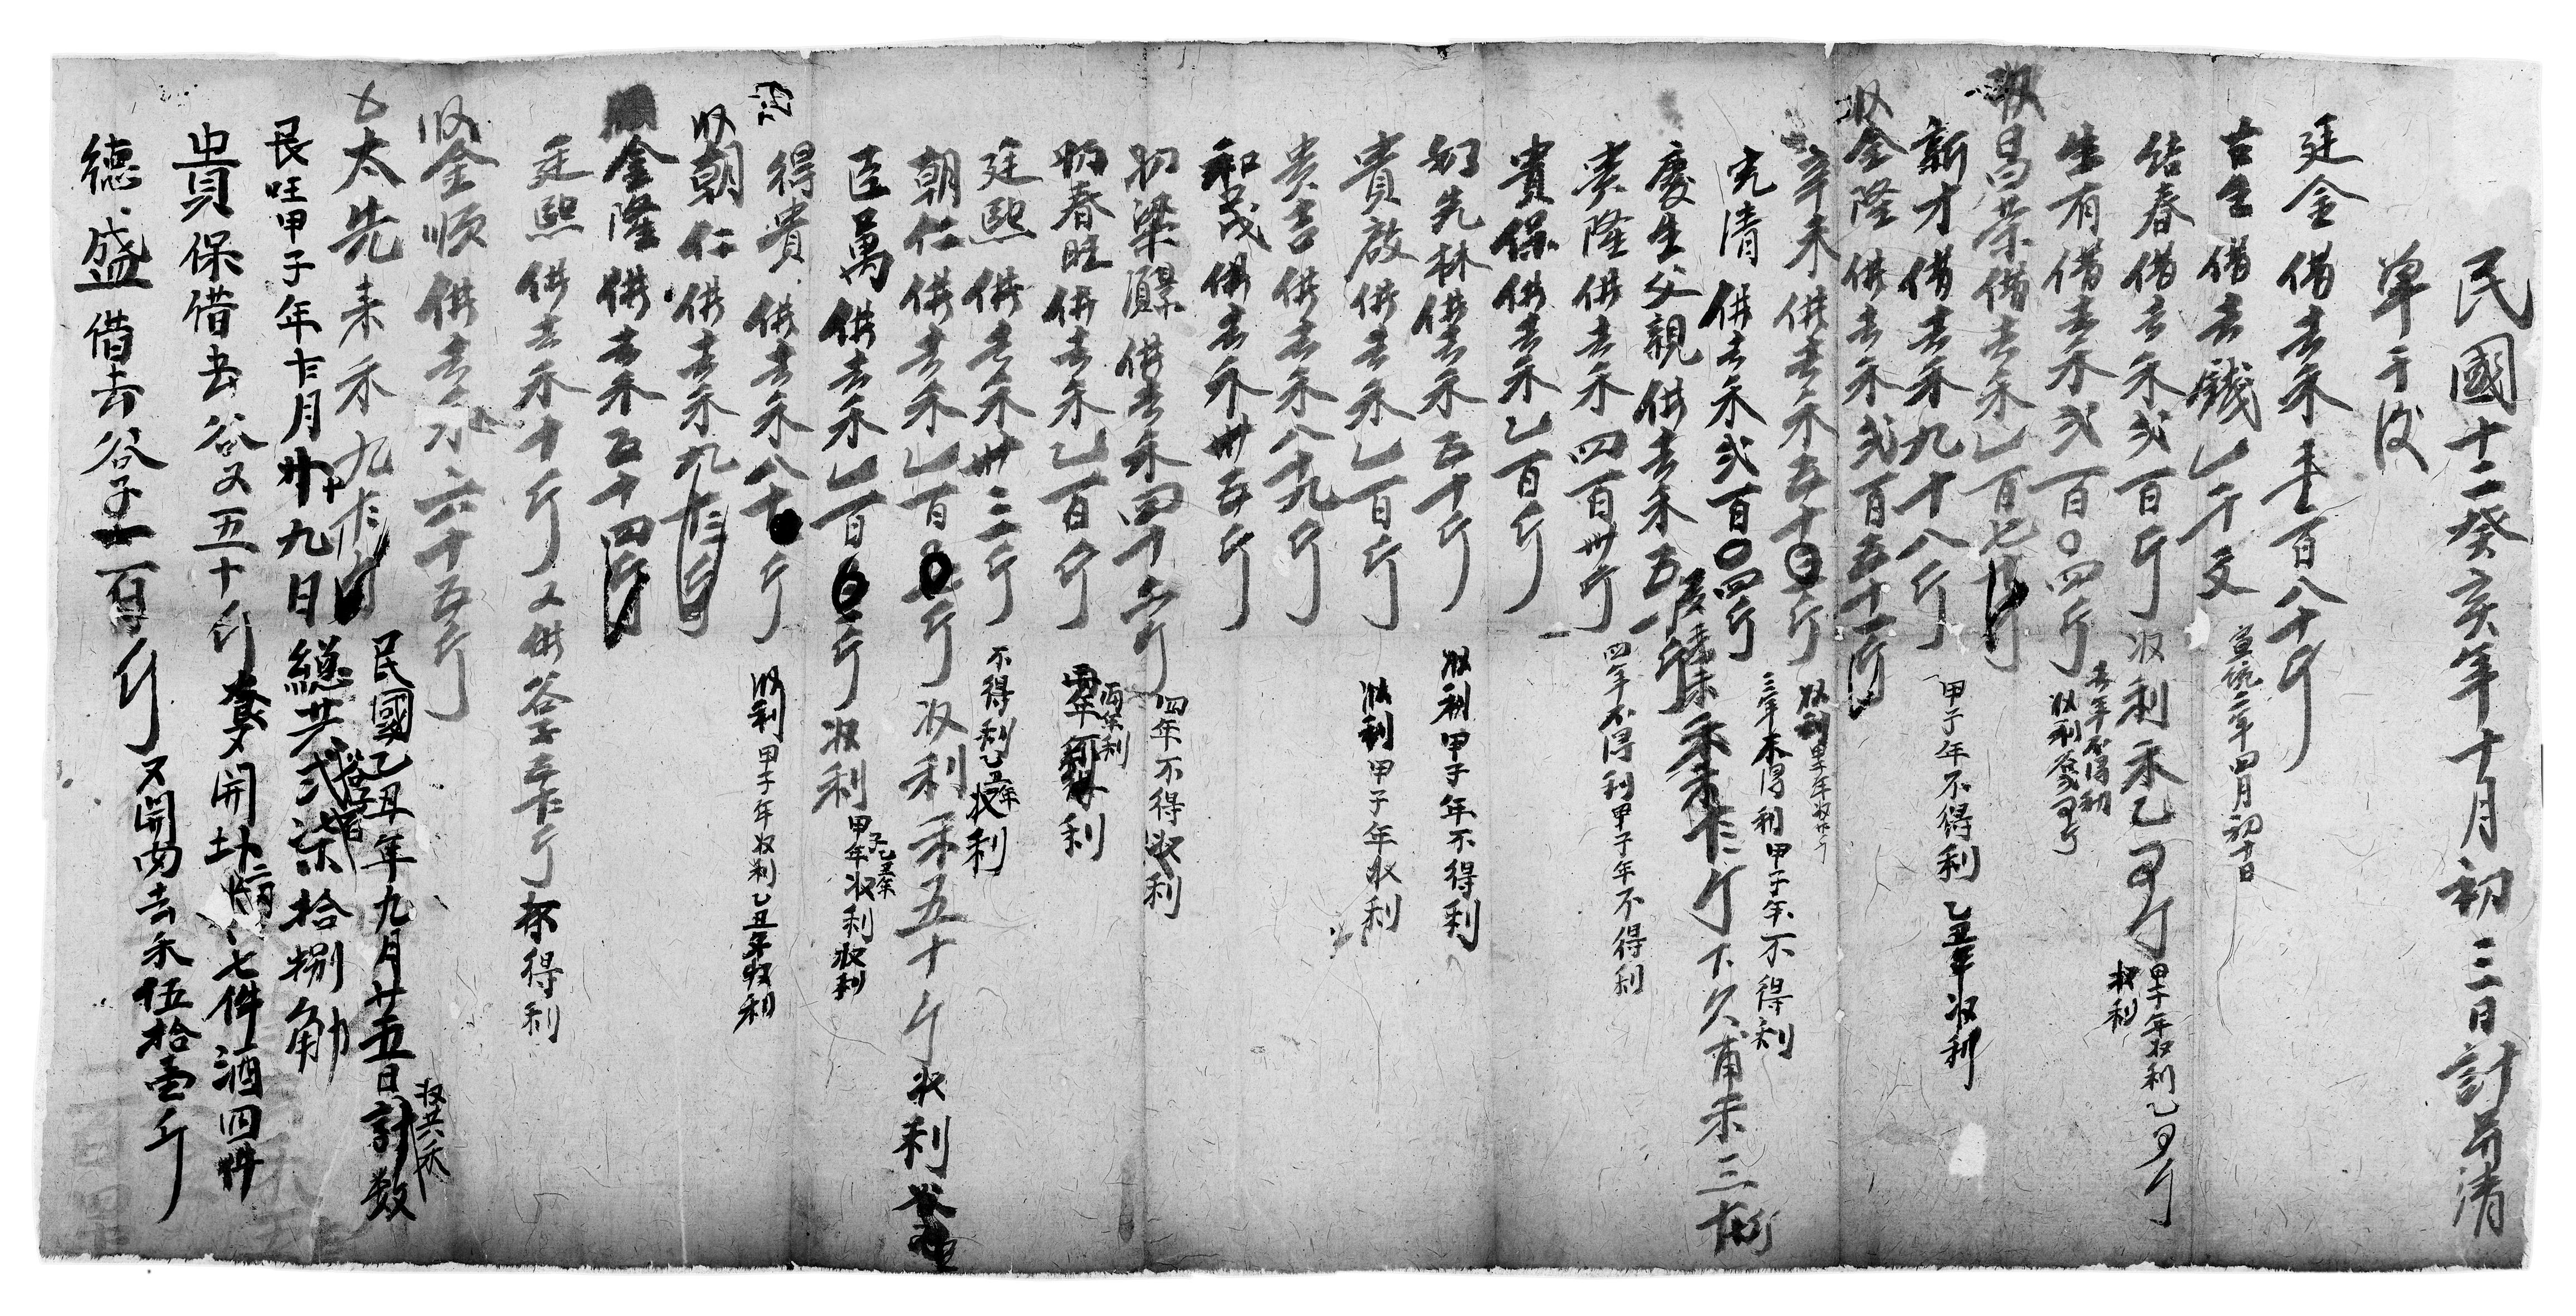 民國十二癸亥年十月初三日計算清
單于後
廷金借去禾壹百八十斤
古生借去錢乙千文 宣統二年四月初十日
結春借去禾弍百斤 收利禾乙百斤 甲子年收利乙百斤 收利
生有借去禾弍百〇四斤 去年不得利 收利
收昌榮借去禾乙百七十斤
新才借去禾九十八斤 甲子年不得利 乙丑年收利
收金隆借去禾弍百五十一斤
辛未借去禾五十斤 收利甲子年收
完清借去禾弍百〇四斤 三年不得利甲子年不得利
慶生父親借去禾五十斤
貴隆借去禾四百卅斤 四年不得利甲子年不得利
貴保借去禾乙百斤
初先林借去禾五十斤 收利甲子年不得利
貴啟借去禾乙百斤 收利甲子年收利
貴吉借去禾八十九斤
和茂借去禾卅五斤
初梁借去禾四十六斤 四年不得收利
春旺借去禾乙百斤 兩年利
廷熙借去禾卅三斤 不得利乙丑年收利
朝仁借去禾乙百斤 收利禾五十斤收利
臣萬借去禾乙百斤 收利甲子年收利乙丑年收利
得貴借去禾八十斤 收利甲子年收利乙丑年收利
收朝仁借去禾九十三斤
金隆借去禾五十四斤
廷熙借去禾十斤又借谷子五十斤不得利
收金順借去禾六十五斤
太先來禾九十
民國乙丑年九月廿五日計数 收共禾
艮旺甲子年十月廿九日總共弍柒拾捌觔
貴保借去谷又五十斤 又開 七件酒四件
德盛借去谷子一百斤 又開内去禾伍拾壹斤